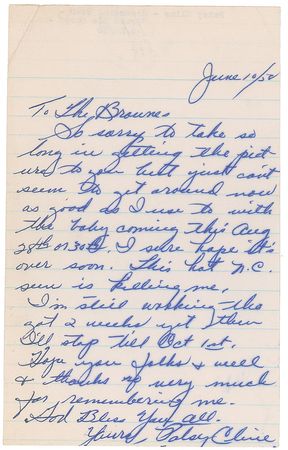 June 10/58
To The Browns
So sorry to take so
long in getting the pict
ures to you but just can't
seem to get around now
as good as I use to with
the baby coming this Aug
28th or 30th. I sure hope it's
over soon. This hot N.C.
sun is killing me.
I'm still working tho
got 2 weeks yet then
I'll stop till Oct 1st.
Hope you folks & well
& thanks so very much
for remembering me.
God Bless You All.
Yours, Patsy Cline